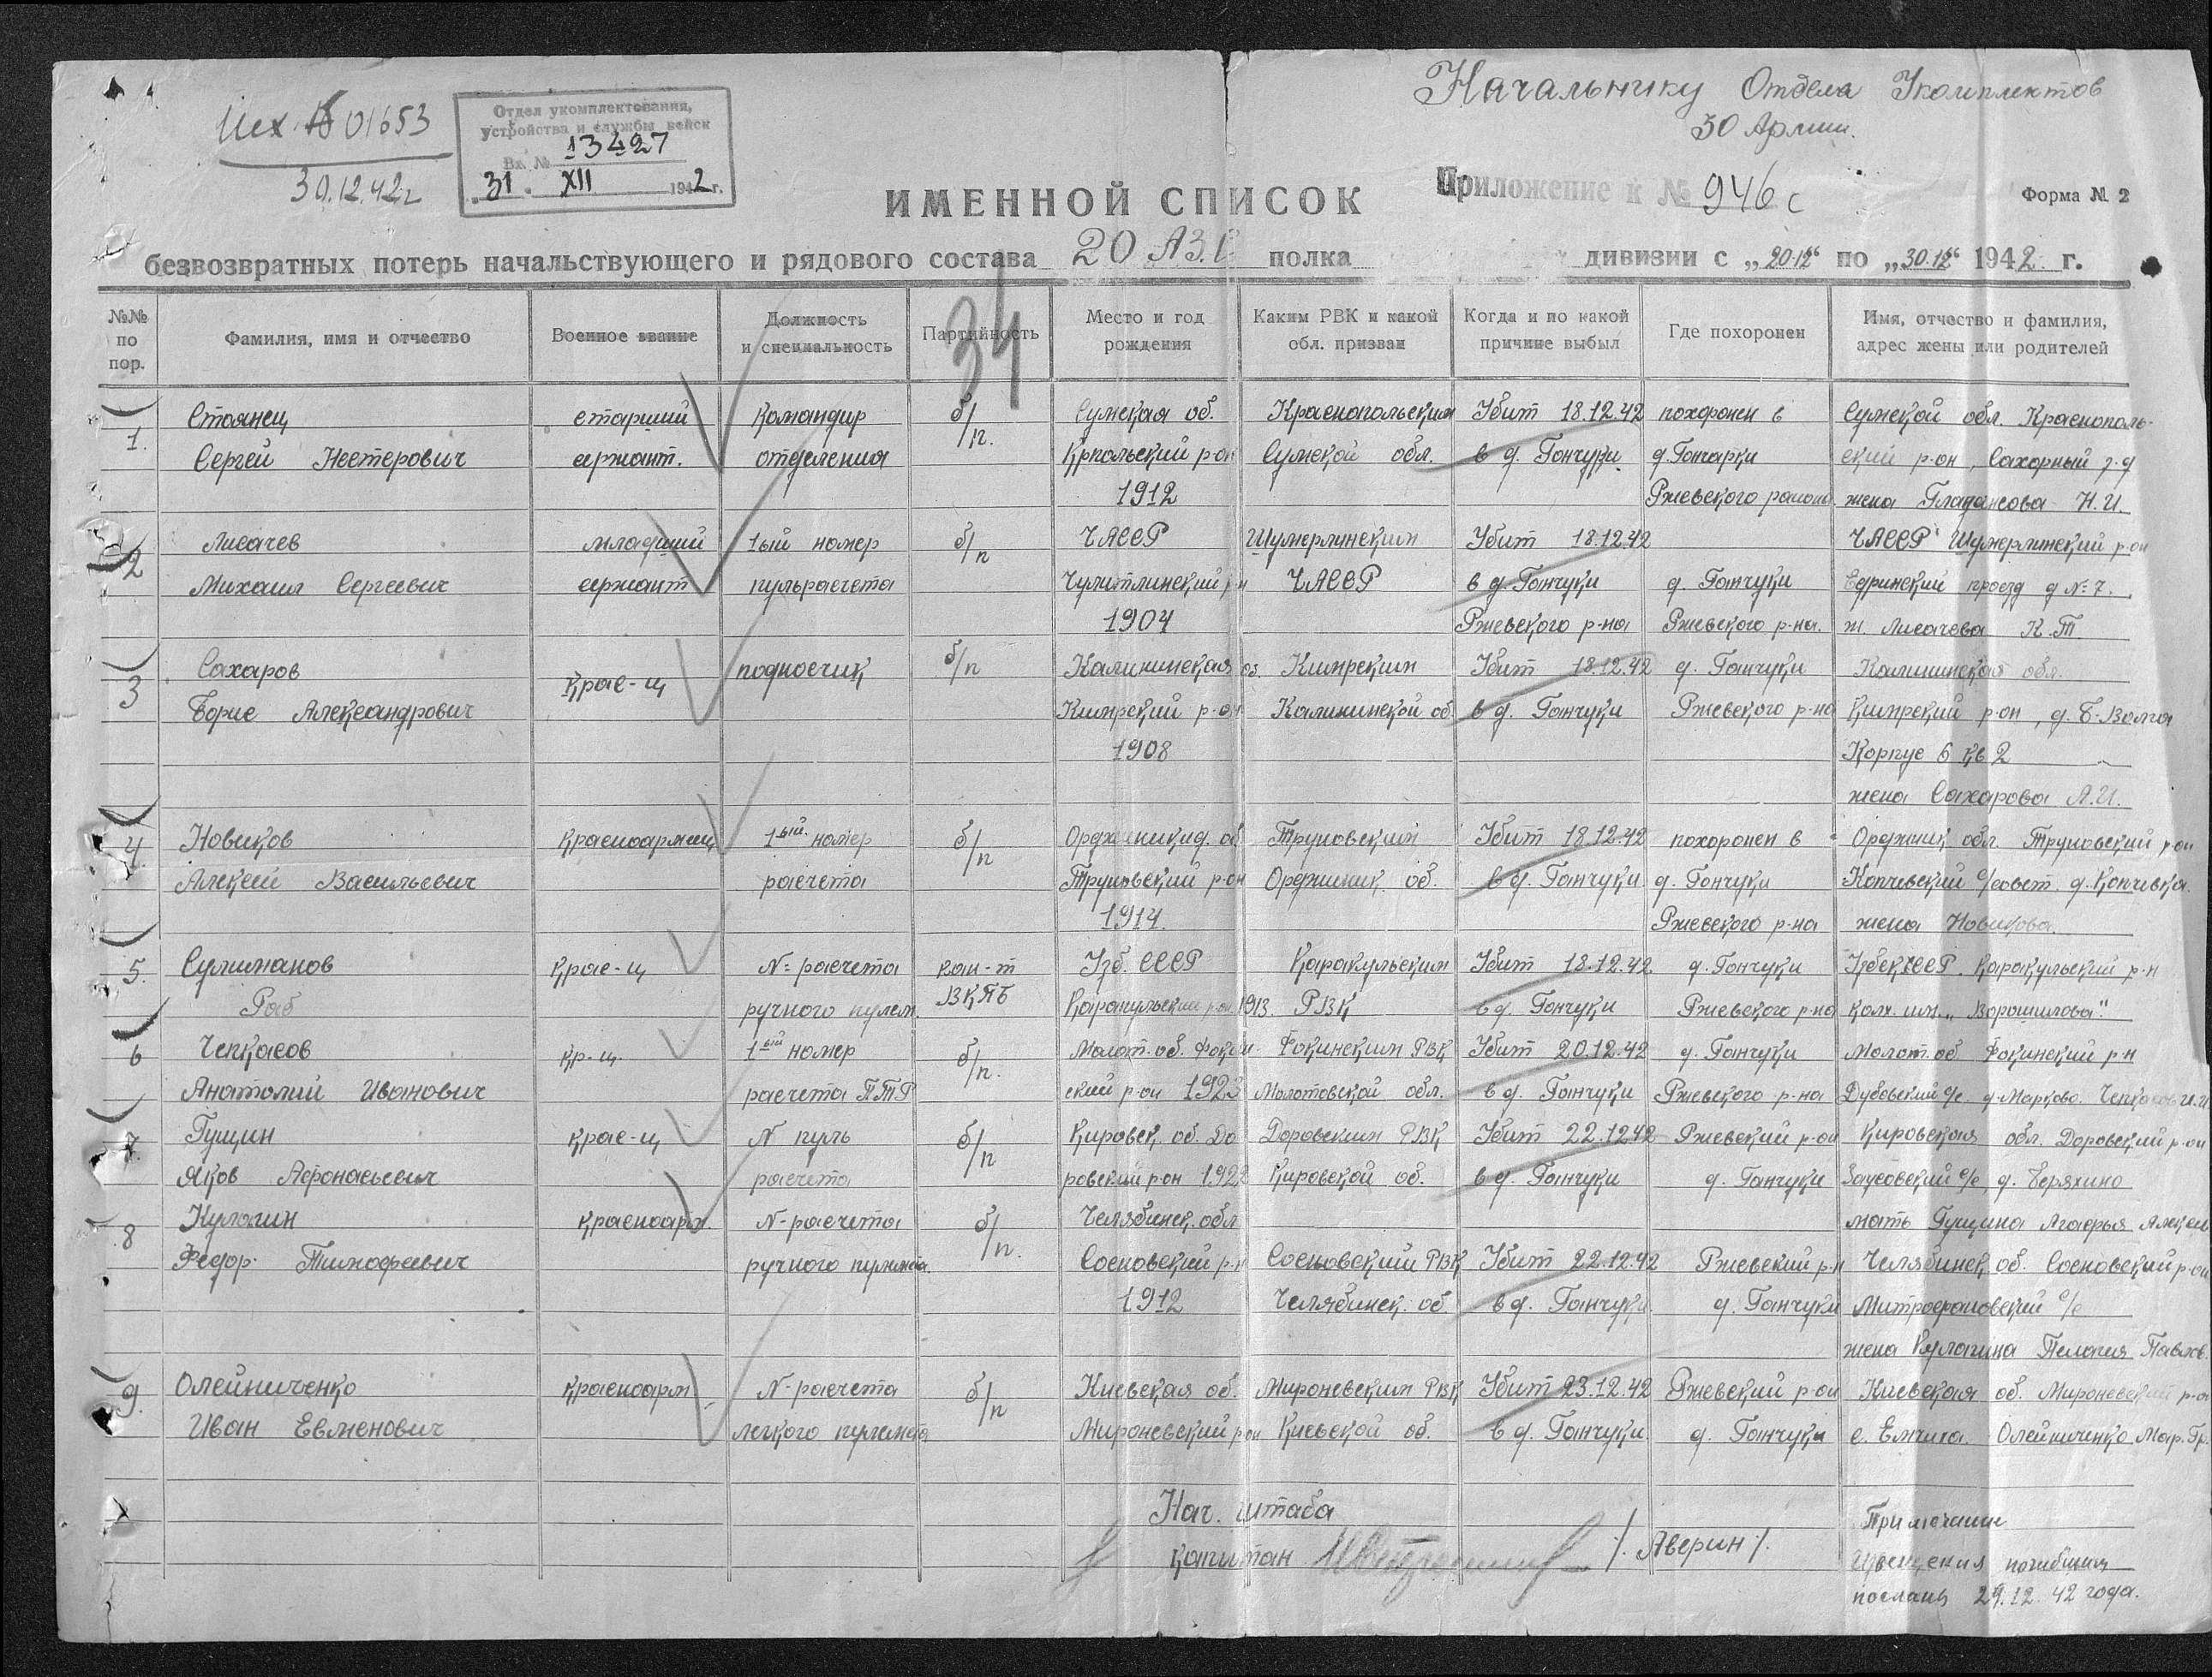 Исх № 01653
30.12.42 г.
Отдел укомплектования,
устройства и службы войск
Вх. № 13427
31. XII 1942 г.
Начальнику Отдела Укомплектов
30 Армии.
Приложение к № 946 с
Форма № 2
ИМЕННОЙ СПИСОК
безвозвратных потерь начальствующего и рядового состава 20 полка дивизии с „20.12“ по „30.12“ 1942 г.
34
№№ по пор. Фамилия, имя и отчество Военное звание Должность и специальность Партийность Место и год рождения Каким РВК и какой обл. призван Когда и по какой причине выбыл Где похоронен Имя, отчество и фамилия, адрес жены или родителей
1. Стоянец старший командир б/п. Сумская об. Краснопольским Убит 18.12.42 похоронен в Сумской обл. Краснополь-
Сергей Нестерович сержант. отделения Крпольский р-он Сумской обл. в д. Гончуки д. Гончарки ский р-он, Сахорный з-д
1912 Ржевского района жена Н.И.
2 Лисачев младший 1ый номер б/п ЧАССР Шумерлинским Убит 18.12.42 ЧАССР Шумерлинский р-он
Михаил Сергеевич сержант пульрасчета ЧАССР в д. Гончуки д. Гончуки Едринский проезд д №7.
1904 Ржевского р-на Ржевского р-на. ж. Лисачева К.Т
3 Сахаров крас-ц подносчик б/п Калининская об. Кимрским Убит 18.12.42 д. Гончуки Калининская обл.
Борис Александрович Кимрский р-он Калининской об в д. Гончуки Ржевского р-на Кимрский р-он, д. Б-Волга
1908 Корпус 6 кв 2
жена Сахарова А.И.
4. Новиков красноармеец 1ый номер б/п Орджникид. об Труновским Убит 18.12.42 похоронен в Орджник. обл. Труновский р-он
Алексей Васильевич расчета Труновский р-он Орджник. об. в д. Гончуки д. Гончуки с/совет д.
1914. Ржевского р-на жена Новикова.
5. Сулиманов крас-ц №: расчета кан-т ВКПБ Узб. СССР Каракульским Убит 18.12.42 д. Гончуки Каракульский р-н
Раб ручного пулем. Каракульский р-он 1913. РВК в д. Гончуки Ржевского р-на колх. им. „Ворошилова"
6 Чепкасов кр-ц. 1ый номер б/п. Молот. об. Фокин- Фокинским РВК Убит 20.12.42 д. Гончуки Молот. об Фокинский р-н
Анатолий Иванович расчета ПТР ский р-он 1923 Молотовской обл. в д. Гончуки Ржевского р-на Дубовский с/с д. Марково. Чепкасов И.И
7. Гущин крас-ц N пуль б/п Кировск. об. До Доровским РВК Убит 22.12.42 Ржевский р-он Кировская обл. Доровский р-он
Яков Афонасьевич расчета ровский р-он 1922 Кировской об. в д. Гончуки д. Гончуки с/с, д.
8 Кулагин красноарм. N-расчета б/п. Челябинск. обл мать Гущина Агафья Алексеи
Федор Тимофеевич ручного пулемета. Сосновский р-н Сосновский РВК Убит 22.12.42 Ржевский р-н Челябинск. об. Сосновский р-он
1912 Челябинск. об в д. Гончуки д. Гончуки Митрофановский с/с
жена Кулагина Пелагия Павлов.
9. Олейниченко красноарм N-расчета б/п Киевская об. Мироневским РВК Убит 23.12.42 Ржевский р-он Киевская об. Мироневский р-он
Иван Евменович легкого пулемета Мироневский р-он Киевской об. в д. Гончуки д. Гончуки с. Емчиха. Олейниченко Мар. Гр.
Нач. штаба
капитан /. Аверин /.
Примечание
Извещения погибших
посланы 29.12.42 года.